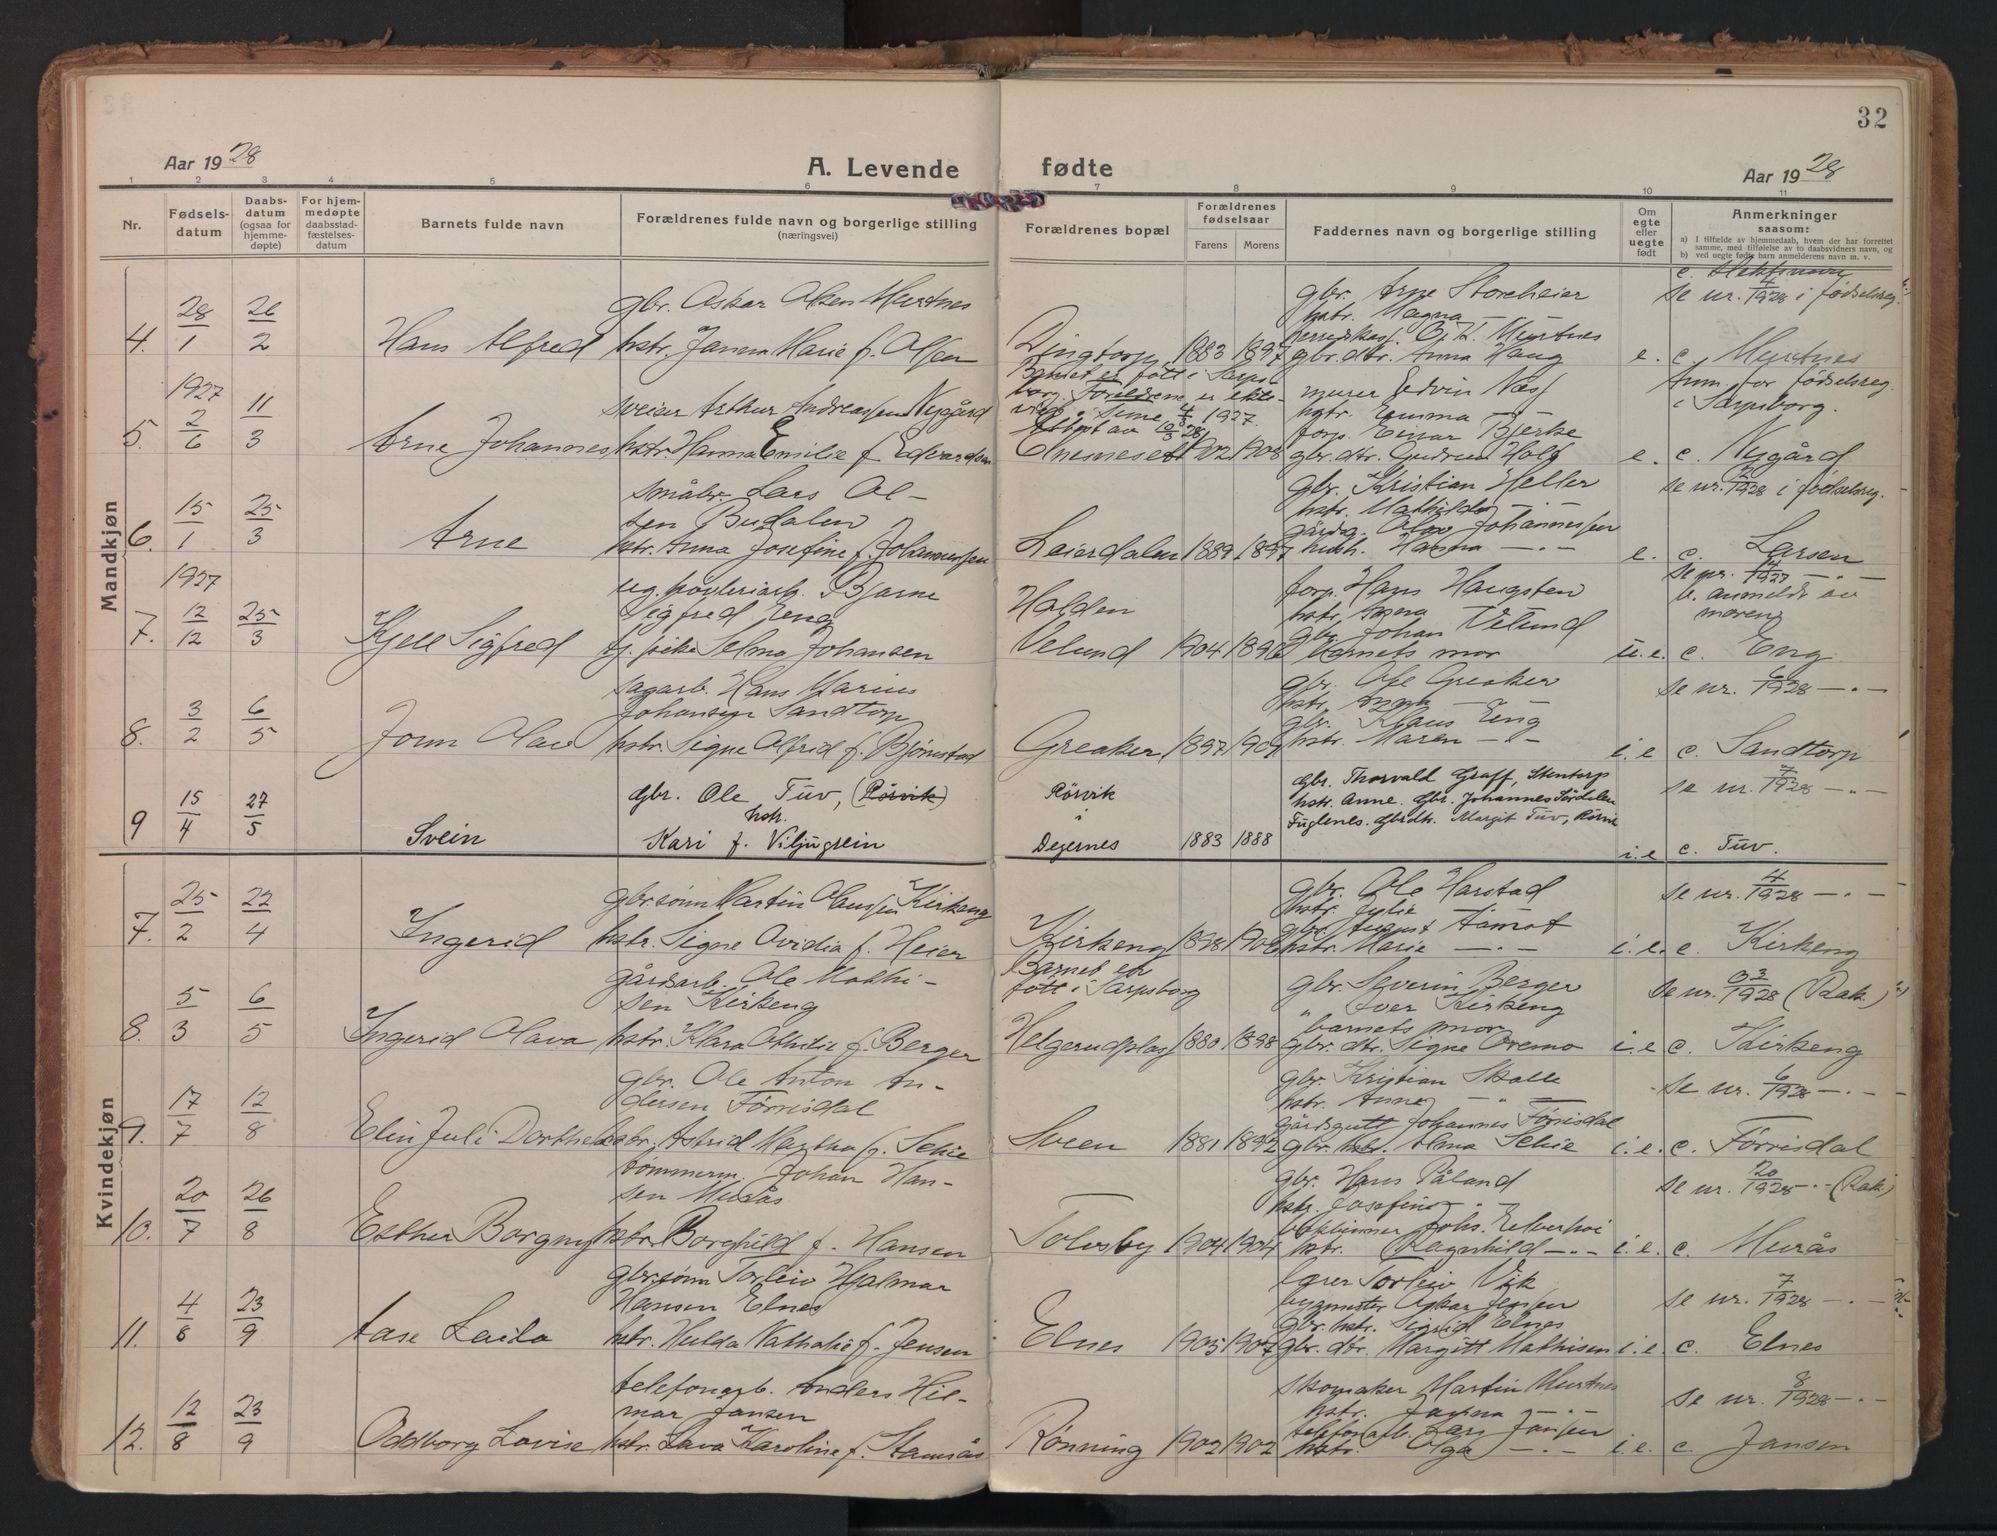 32
Aar 1928
A. Levende
fødte
Aar 1928
1 2 3 4 5 6 7 8 9 10 11
Nr.
Fødsels-
datum
Daabs-
datum
(ogsaa for
hjemme-
døpte)
For hjem-
medøpte
daabsstad-
fæstelses-
datum
Barnets fulde navn
Forældrenes fulde navn og borgerlige stilling
(næringsvei)
Forældrenes bopæl
Forældrenes
fødselsaar
Farens Morens
Faddernes navn og borgerlige stilling
Om
egte
eller
uegte
født
Anmerkninger
saasom:
a) I tilfælde av hjemmedaab, hvem der har forrettet
samme, med tilføielse av to daabsvidners navn, og
b) ved uegte fødte barn anmelderens navn m. v.
Mandkjøn
4. 28/1 26/2
Hans Alfred
gbr. Oskar Olsen Murtnes
hstr. Marie f. Olsen
1883 1897
gbr. Arne Storeheier
hstr. Magna —
Murtnes
gbr.dtr. Anna Haug
e.
se nr. 4/1928 i fødselsreg.
c. Murtnes
5. 1927 2/6 11/3
Arne Johannes
sveiser Arthur Andreassen Nygård
hstr. Hanna Emilie f. Edvardsen
Barnet er født i Sarps-
borg. Foreldrene er ekte-
viet i 1927.
1902 1908
murer Edvin Næss
hstr. Emma —
forp. Einar Bjerke
gbr.dtr. Gudrun Holt
e.
Anm. for fødselsreg.
i Sarpsborg.
c. Nygård
6. 15/1 25/3
Arne
småbr. Lars Ol-
sen Budalen
hstr. Anna Josefine f. Johannessen
Leierdalen 1889 1897
gbr. Kristian Heller
hstr. Mathilde
gårdg. Olav Johannessen
Hanna — . —
e.
se nr. 2/1928 i fødselsreg.
c. Larsen
7. 1927 12/12 25/3
Kjell Sigfred
ug. Bjarne
Sigfred Eng
tj. pike Selma Johansen
Halden
Velund 1904 1896
forp. Hans Haugsten
hstr. Anna
gbr. Johan Velund
barnets mor
u.e.
se nr. 14/1927 — . —
b. anmeldt av
moren
c. Eng
8. 3/2 6/5
John Olav
sagarb. Hans Marius
Johansen Sandtorp
hstr. Signe Alfrid f. Bjørnstad
Greaker 1897
gbr. Ole Greaker
hstr. Anna —
gbr. Klaus Eng
hstr. Maren — . —
i.e
se nr. 6/1928 — . —
c. Sandtorp
9 15/4 27/5
Svein
Gbr. Ole Tuv, (Rørvik)
hstr.
Kari f. Viljugrein
Rørvik
i
Degernes 1883 1888
Gbr. Thorvald Graff, Stentorp
hstr. Anne. Gbr. Johannes Sørdalen
Fuglenes. Gbrdtr. Margit Tuv, Rørvik
i.e
se nr. 7/1928 — . —
c. Tuv.
Kvindekjøn
7. 25/2 22/4
Ingerid
gbr.sønn Martin Olaussen Kirkeng
hstr. Signe Ovidia f. Heier
Kirkeng 1898 1906
gbr. Ole Harstad
hstr. Julie
gbr. August Åmot
hstr. Marie — . —
i.e.
se nr. 4/1928 — . —
c. Kirkeng
8. 5/3 6/5
Ingerid Olava
gårdsarb. Ole Mathi-
sen Kirkeng
hstr. Klara Othilie f. Berger
Barnet er
født i Sarpsborg
Helgerudplass 1880 1898
gbr. Severin Berger
" Iver Kirkeng
barnets mor
gbr.dtr. Signe Oremo
i.e
se nr. 33/1928 (Rak.)
c. Kirkeng
9. 17/7 12/8
Elin Juli Dorthea
gbr. Ole Anton An-
dersen Førrisdal
hstr. Astrid Martha f. Sekie
Sveen 1881 1892
gbr. Kristian Skolle
hstr. Anne — " —
gårdsgutt Johannes Førrisdal
gbr. hstr. Alma Sekie
i.e.
se nr. 6/1928 — . —
c. Førrisdal
10. 20/7 26/8
Esther Borgny
tømmerm. Johan Han-
sen Murås
hstr. Borghild f. Hansen
Tolesby 1904 1904
gbr. Hans Påland
hstr. Josefine — . —
Johs. Elverhøi
hstr. Ragnhild — . —
i.e.
se nr. 20/1928 — . — (Rak.)
c. Murås
11. 4/8 23/9
Aase Laila
gbr.sønn Torleiv Hjalmar
Hansen Elnes
hstr. Hulda Nathalie f. Jensen
Elnes 1905 1907
lærer Torleiv Vik
bygmester Oskar Jensen
gbr. hstr. Sigrid Elnes
gbr. dtr. Margitt Mathisen
i.e.
se nr. 7/1928 — . —
c. Elnes
12. 12/8 23/9
Oddborg Lovise
telefonarb. Anders Hil-
mar Jansen
hstr. Lava Karoline f. Stamsås
Rønning 1902 1902
skomaker Martin Murtnes
hstr. Jagna — . —
telefonarb. Lars Jansen
hstr. Olga — . —
i.e.
se nr. 8/1928 — . —
c. Jansen